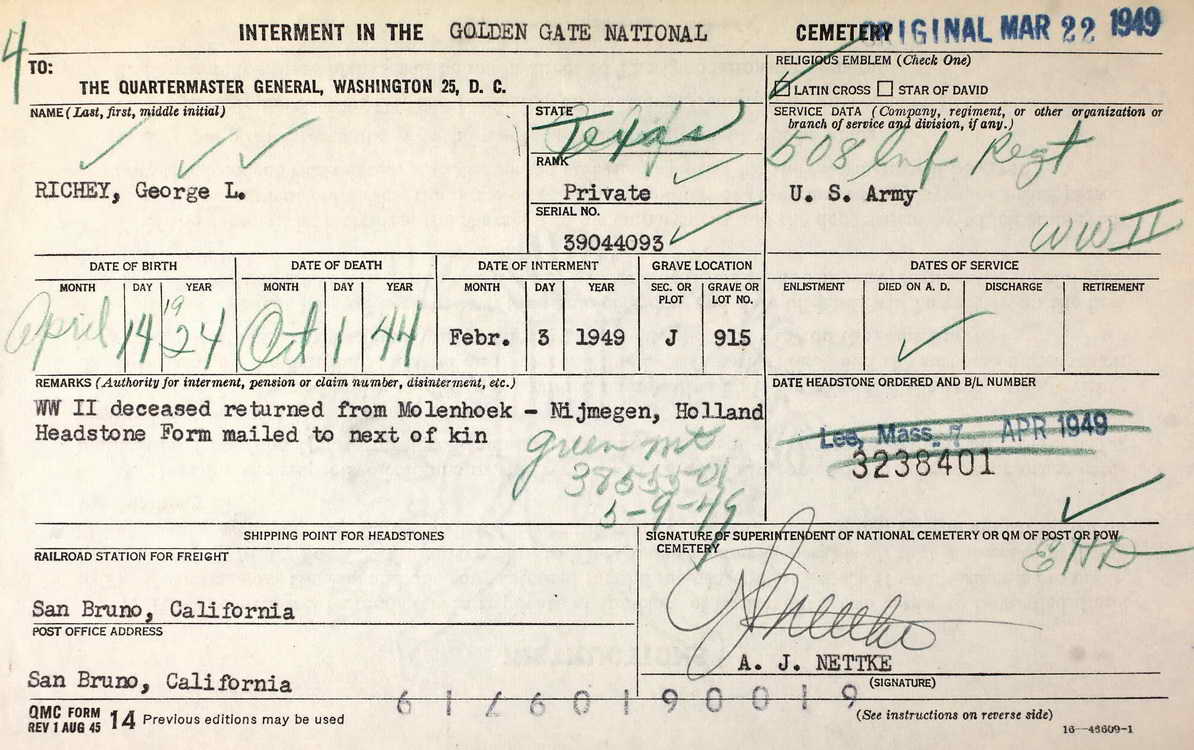 4
INTERMENT IN THE GOLDEN GATE NATIONAL CEMETERY
ORIGINAL MAR 22 1949
TO:
THE QUARTERMASTER GENERAL, WASHINGTON 25, D. C.
RELIGIOUS EMBLEM (Check One)
LATIN CROSS STAR OF DAVID
NAME (Last, first, middle initial)
RICHEY, George L.
STATE
Texas
RANK
Private
SERIAL NO.
39044093
SERVICE DATA (Company, regiment, or other organization or
branch of service and division, if any.)
508 Inf Regt
U. S. Army
WW II
DATE OF BIRTH DATE OF DEATH DATE OF INTERMENT GRAVE LOCATION DATES OF SERVICE
MONTH DAY YEAR MONTH DAY YEAR MONTH DAY YEAR SEC. OR PLOT GRAVE OR LOT NO. ENLISTMENT DIED ON A. D. DISCHARGE RETIREMENT
April 14 1924 Oct 1 44 Febr. 3 1949 J 915
REMARKS (Authority for interment, pension or claim number, disinterment, etc.)
WW II deceased returned from Molenhoek - Nijmegen, Holland
Headstone Form mailed to next of kin
green mt
3855501
5-9-49
DATE HEADSTONE ORDERED AND B/L NUMBER
Lee, Mass. 7 APR 1949
3238401
SHIPPING POINT FOR HEADSTONES
RAILROAD STATION FOR FREIGHT
San Bruno, California
POST OFFICE ADDRESS
San Bruno, California
SIGNATURE OF SUPERINTENDENT OF NATIONAL CEMETERY OR QM OF POST OR POW
CEMETERY
EHD
A J Nettke
A. J. NETTKE
(SIGNATURE)
QMC FORM
REV 1 AUG 45 14 Previous editions may be used
(See instructions on reverse side)
16—43609-1